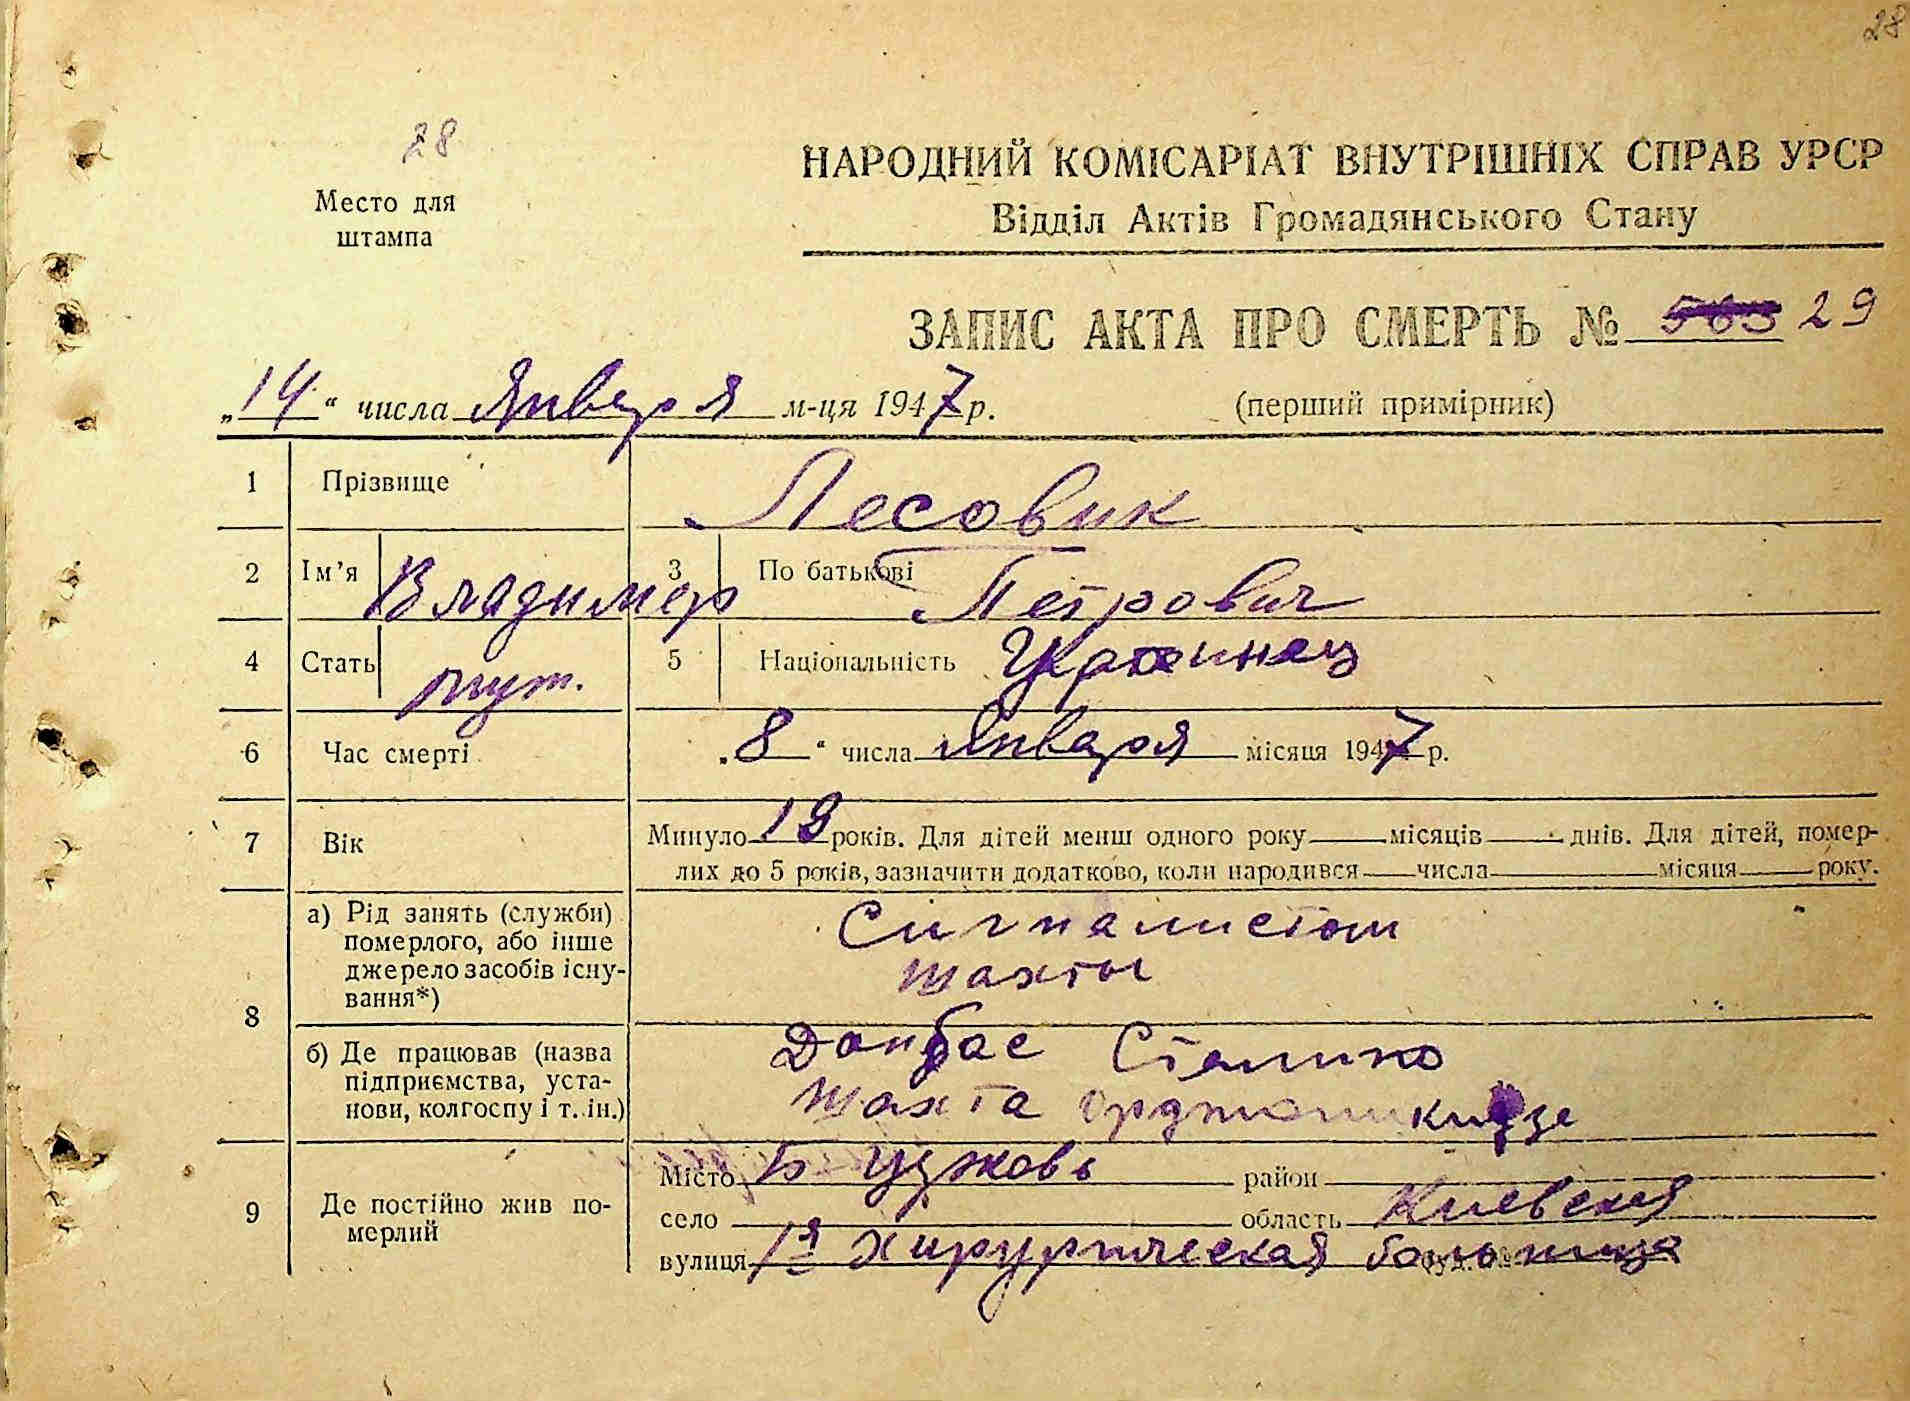 28
28
Место для
штампа
НАРОДНИЙ КОМІСАРІАТ ВНУТРІШНІХ СПРАВ УРСР
Відділ Актів Громадянського Стану
ЗАПИС АКТА ПРО СМЕРТЬ № 29
„14“ числа Января м-ця 1947 р. (перший примірник)
1 Прізвище Лесовик
2 Ім’я Владимер 3 По батькові Петрович
4 Стать муж. 5 Національність Украинец
6 Час смерті „8“ числа Января місяця 1947 р.
7 Вік Минуло 19 років. Для дітей менш одного року місяців днів. Для дітей, помер-
лих до 5 років, зазначити додатково, коли народився числа місяця року.
8 а) Рід занять (служби)
померлого, або інше
джерело засобів існу-
вання*)
Сигналистом
шахты
б) Де працював (назва
підприємства, уста-
нови, колгоспу і т. ін.)
Донбас Сталино
шахта Орджоникидзе
9 Де постійно жив по-
мерлий
Місто Б Церковь район
село область Киевская
вулиця 1я хирургическая больница